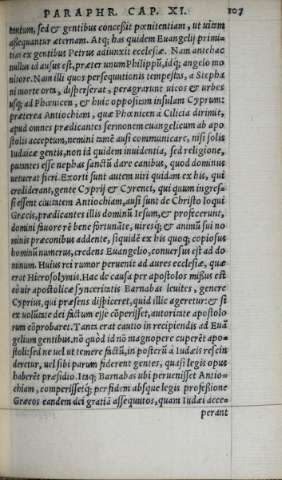 PARAPHR. CAP. XI. 107
tantum, sed & gentibus concessit pœnitentiam, ut uitam
assequantur æternam. Atq; has quidem Euangelij primi-
tias ex gentibus Petrus adiunxit ecclesiæ. Nam antehac
nullus id ausus est, præter unum Philippū, idq; angelo mo
nitore. Nam illi quos persequutionis tempestas, a Stepha
ni morte orta, disperserat, peragrarunt uicos & urbes
usq; ad Phœnicen, & huic oppositam insulam Cyprum:
præterea Antiochiam, quæ Phœnicen a Cilicia dirimit,
apud omnes prædicantes sermonem euangelicum ab apo
stolis acceptum, nemini tamē ausi communicare, nisi solis
Iudaicæ gentis, non id quidem inuidentia, sed religione,
putantes esse nephas sanctū dare canibus, quod dominus
uetuerat fieri. Exorti sunt autem uiri quidam ex his, qui
crediderant, gente Cyprij & Cyrenei, qui quum ingres-
si essent ciuitatem Antiochiam, ausi sunt de Christo loqui
Græcis, prædicantes illis dominū Iesum, & profecerunt,
domini fauore rē bene fortunāte, uiresq; & animū sui no
minis præconibus addente, siquidē ex his quoq; copiosus
hominū numerus, credens Euangelio, conuersus est ad do
minum. Huius rei rumor peruenit ad aures ecclesiæ, quæ
erat Hierosolymis. Hac de causa per apostolos missus est
eò uir apostolicæ synceritatis Barnabas leuites, genere
Cyprius, qui præsens dispiceret, quid illic ageretur: & si
ex volūtate dei factum esse cōperisset, autoritate apostolo
rum cōprobaret. Tanta erat cautio in recipiendis ad Euā
gelium gentibus, nō quòd id nō magnopere cuperēt apo-
stoli: sed ne uel ut temere factū, in posterū à Iudæis rescin
deretur, uel sibi parum fiderent gentes, quasi legis opus
haberēt præsidio. Itaq; Barnabas ubi peruenisset Antio-
chiam, comperissetq; per fidem absque legis professione
Græcos eandem dei gratiā assequutos, quam Iudæi acce-
perant